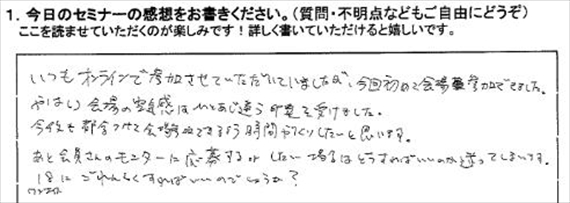 1. 今日のセミナーの感想をお書きください。(質問・不明点などもご自由にどうぞ)
ここを読ませていただくのが楽しみです!詳しく書いていただけると嬉しいです。
いつもオンラインで参加させていただいていましたが、今回初めて会場参加できました。
やはり会場の 感は 違う 受けました。
今後も都合つけて会場参加できるよう時間やりくりしたいと思います。
あと会員さんのモニターに応募する したい場合はどうすればいいのか迷ってしまいます。
ごれんらくすればいいのでしょうか?